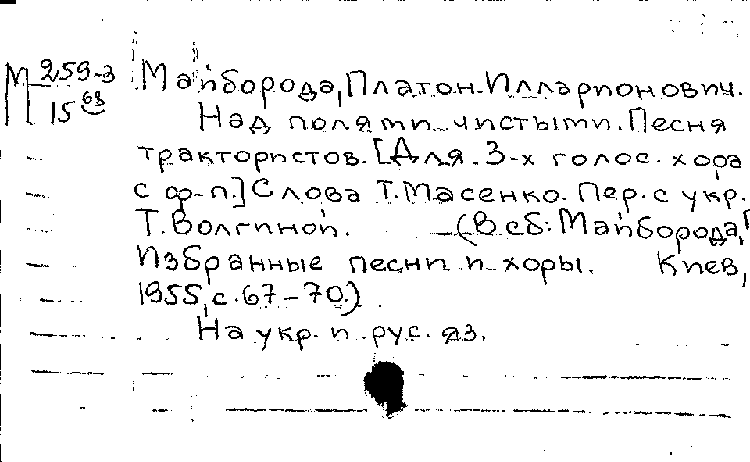 М 259-3
15 63
Майборода, Платон Илларионович.
Над полями чистыми. Песня
трактористов. [Для 3-х голос. хора
с ф-п.] Слова Т. Масенко. Пер. с укр.
Т. Волгиной. (В сб: Майборода,
Избранные песни и хоры. Киев,
1955, с. 67-70.)
На укр. и рус. яз.